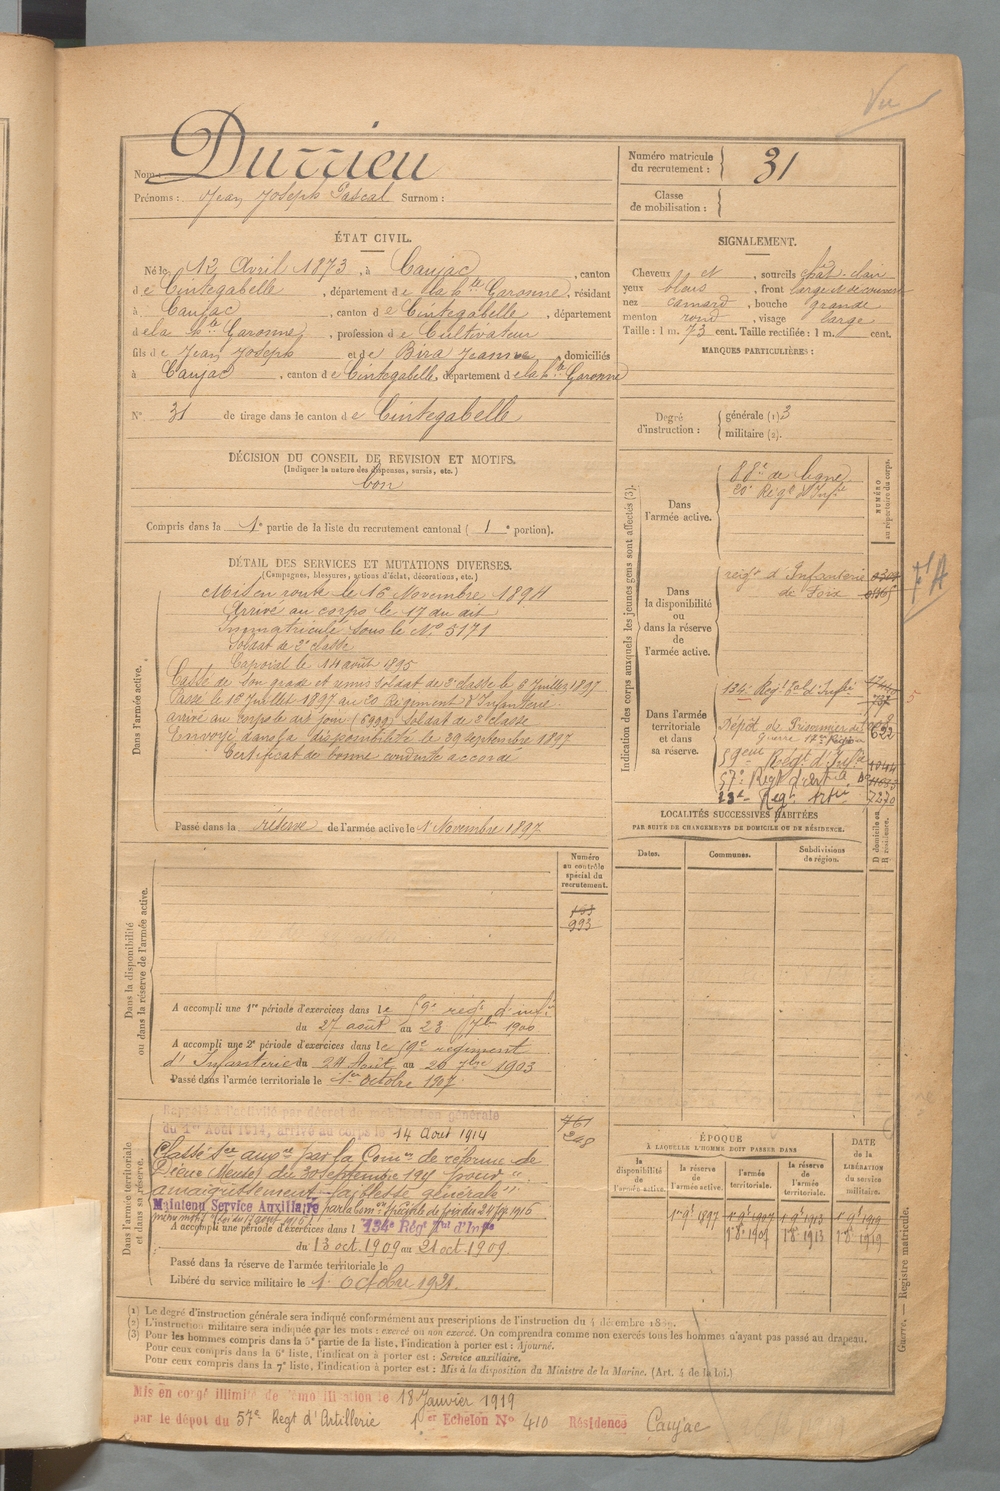 Vu
Nom : Durrieu
Prénoms : Jean Joseph Pascal Surnom :
Numéro matricule du recrutement : 31
Classe de mobilisation :
ÉTAT CIVIL.
Né le 12 Avril 1873, à Caujac, canton
de Cintegabelle, département de la Hte Garonne, résidant
à Caujac, canton de Cintegabelle, département
de la Hte Garonne, profession de Cultivateur
fils de Jean Joseph et de Jeanne, domiciliés
à Caujac, canton de Cintegabelle, département de la Hte Garonne
N° 31 de tirage dans le canton de Cintegabelle
SIGNALEMENT.
Cheveux et, sourcils chât-clair
yeux bleus, front large et découvert
nez camard, bouche grande
menton rond, visage large
Taille : 1 m. 73 cent. Taille rectifiée : 1 m. cent.
MARQUES PARTICULIÈRES :
Degré d'instruction : générale (1) 3
militaire (2).
DÉCISION DU CONSEIL DE REVISION ET MOTIFS.
(Indiquer la nature des dispenses, sursis, etc.)
bon
Compris dans la 1e partie de la liste du recrutement cantonal (1e portion).
DÉTAIL DES SERVICES ET MUTATIONS DIVERSES.
(Campagnes, blessures, actions d'éclat, décorations, etc.)
Dans l'armée active.
Mis en route le 16 Novembre 1894
Arrivé au corps le 17 du dit
Immatriculé sous le No 5171
Soldat de 2e classe
Caporal le 14 août 1895
Cassé de son grade et remis soldat de 2e classe le 6 Juillet 1897
Passé le 16 Juillet 1897 au 20 Régiment d'Infanterie
arrivé au corps le dit jour (6999) Soldat de 2e classe
Envoyé dans la disponibilité le 29 septembre 1897
Certificat de bonne conduite accordé
Passé dans la réserve de l'armée active le 1 Novembre 1897
Indication des corps auxquels les jeunes gens sont affectés (3).
NUMÉRO au répertoire du corps.
Dans l'armée active.
88e de ligne
20e Régt d'Infie
Dans la disponibilité ou dans la réserve de l'armée active.
régt d'Infanterie
de Foix
Dans l'armée territoriale et dans sa réserve.
134e Régt tal d'Infie
Dépôt de Prisonniers de
guerre 17e Région
622
59eme Régt d'Infie
57e Regt d'art
23e Regt Artie 7270
LOCALITÉS SUCCESSIVES HABITÉES
PAR SUITE DE CHANGEMENTS DE DOMICILE OU DE RÉSIDENCE.
Dates. Communes. Subdivisions de région. D domicile ou R résidence.
Dans la disponibilité ou dans la réserve de l'armée active.
Numéro au contrôle spécial du recrutement.
993
A accompli une 1re période d'exercices dans le 59e régt d'infie
du 27 août au 23 7bre 1900
A accompli une 2e période d'exercices dans le 59e régiment
d'Infanterie du 24 Août au 20 7bre 1903
Passé dans l'armée territoriale le 1er octobre 1907
Dans l'armée territoriale et dans sa réserve.
Rappelé à l'activité par décret de mobilisation générale
du 1er Août 1914, arrivé au corps le 14 Août 1914
Classé Sce auxre par la Comon de réforme de
(Meuse) du 30 septembre 191 pour
amaigrissement, faiblesse générale
Maintenu Service Auxiliaire
A accompli une période d'exercices dans l 134e Régt tal d'Infie
du 13 oct. 1909 au 21 oct. 1909.
Passé dans la réserve de l'armée territoriale le
Libéré du service militaire le 1 Octobre 1921.
ÉPOQUE
À LAQUELLE L'HOMME DOIT PASSER DANS
la disponibilité de l'armée active. la réserve de l'armée active. l'armée territoriale. la réserve de l'armée territoriale. DATE de la LIBÉRATION du service militaire.
1er 9e 1897 1e 9e 1907 1e 9e 1913 1e 9e 1919
1e 8e 1907 1e 8e 1913 1e 8e 1919
Guerre. — Registre matricule.
(1) Le degré d'instruction générale sera indiqué conformément aux prescriptions de l'instruction du 4 décembre 1889.
(2) L'instruction militaire sera indiquée par les mots : exercé ou non exercé. On comprendra comme non exercés tous les hommes n'ayant pas passé au drapeau.
(3) Pour les hommes compris dans la 5e partie de la liste, l'indication à porter est : Ajourné.
Pour ceux compris dans la 6e liste, l'indication à porter est : Service auxiliaire.
Pour ceux compris dans la 7e liste, l'indication à porter est : Mis à la disposition du Ministre de la Marine. (Art. 4 de la loi.)
Mis en congé illimité de démobilisation le 18 Janvier 1919
par le dépôt du 57e Regt d'Artillerie 1er Echelon No 410 Résidence Caujac